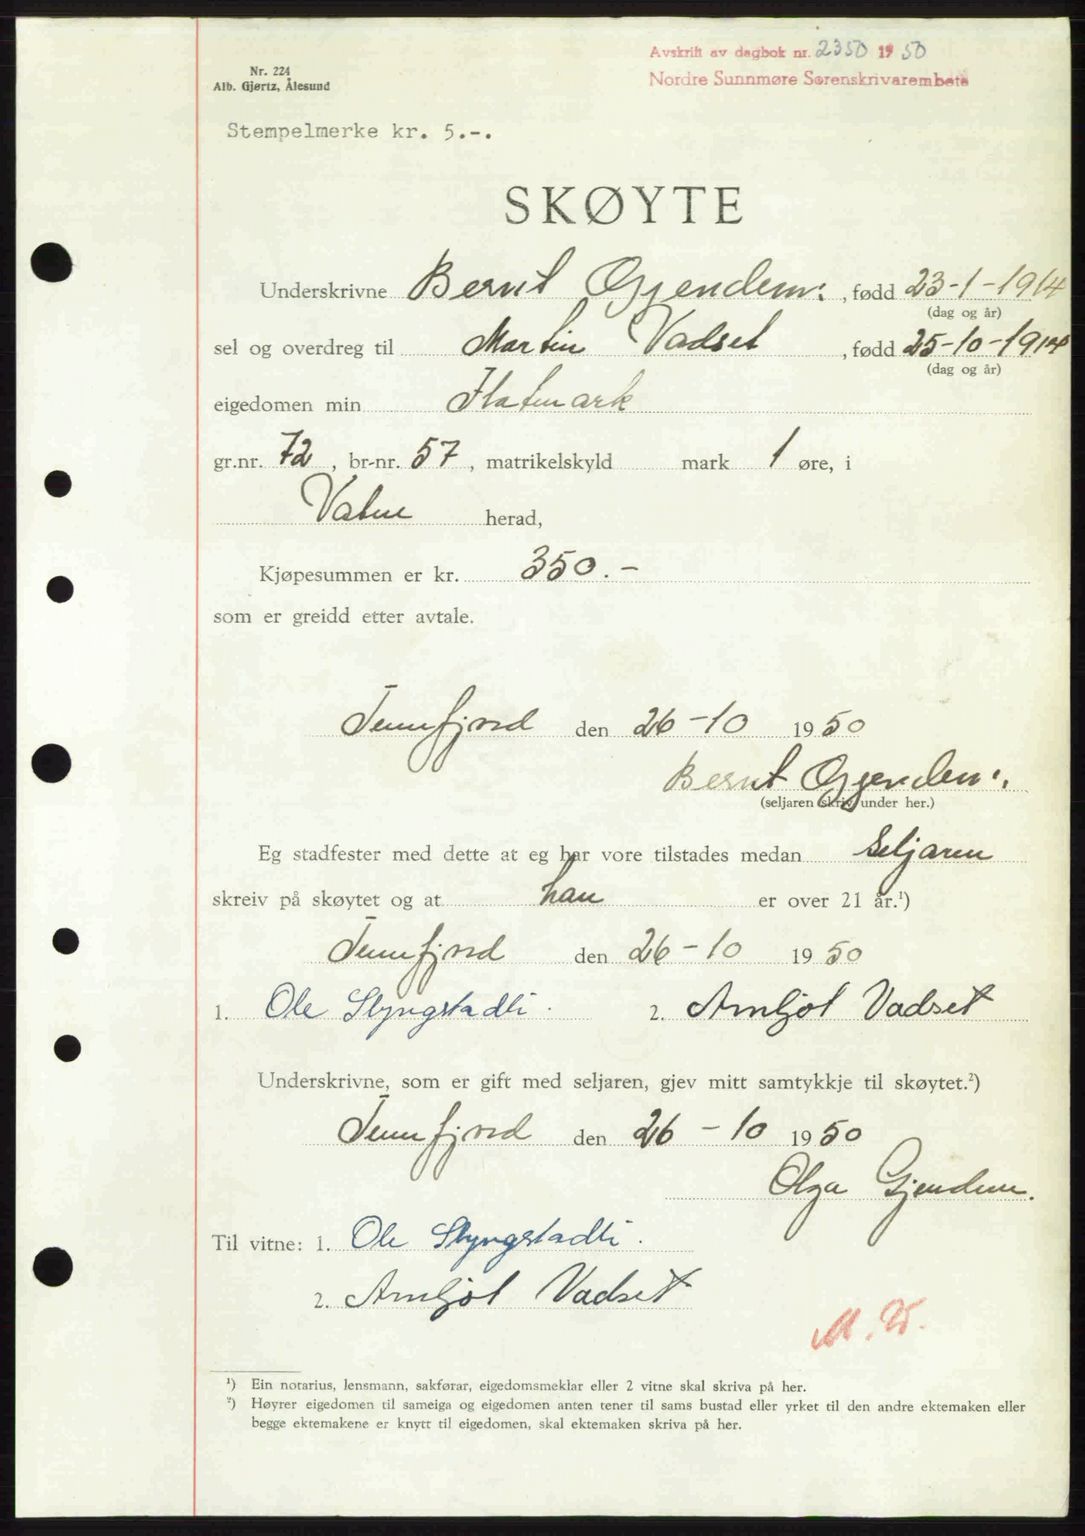 Avskrift av dagbok nr. 2350 1950
Nordre Sunnmøre Sorenskrivarembete
Nr. 224
Alb. Gjørtz, Ålesund
Stempelmerke kr. 5.-.
SKØYTE
Underskrivne Bernt Gjendem , fødd 23-1-1914
(dag og år)
sel og overdreg til Martin Vadset , fødd 25-10-1914
(dag og år)
eigedomen min Flatmark
gr.nr. 72 , br-nr. 57 , matrikelskyld mark 1 øre, i
Vatne herad,
Kjøpesummen er kr. 350.-
som er greidd etter avtale.
Tennfjord den 26-10 1950
Bernt Gjendem
(seljaren skriv under her.)
Eg stadfester med dette at eg har vore tilstades medan Seljaren
skreiv på skøytet og at han er over 21 år.¹)
Tennfjord den 26-10 1950
1. Ole Slyngstadli. 2. Arnljot Vadset
Underskrivne, som er gift med seljaren, gjev mitt samtykkje til skøytet.²)
Tennfjord den 26-10 1950
Olga Gjendem.
Til vitne: 1. Ole Slyngstadli.
2. Arnljot Vadset
M.V.
¹) Ein notarius, lensmann, sakførar, eigedomsmeklar eller 2 vitne skal skriva på her.
²) Høyrer eigedomen til sameiga og eigedomen anten tener til sams bustad eller yrket til den andre ektemaken eller
begge ektemakene er knytt til eigedomen, skal ektemaken skriva på her.